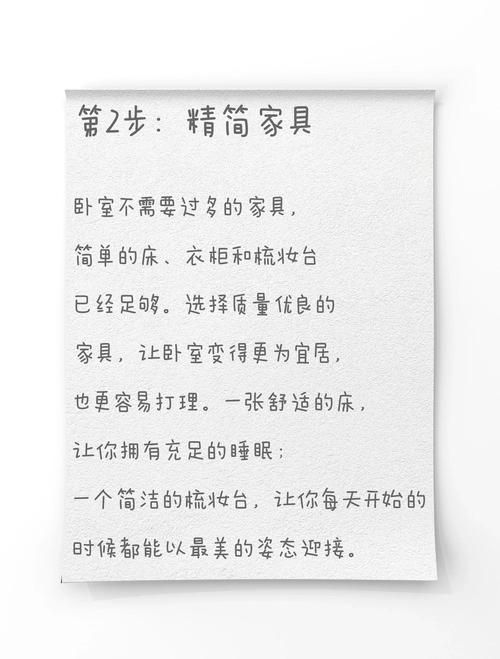 第2步：精简家具
卧室不需要过多的家具，
简单的床、衣柜和梳妆台
已经足够。选择质量优良的
家具，让卧室变得更为宜居，
也更容易打理。一张舒适的床，
让你拥有充足的睡眠；
一个简洁的梳妆台，让你每天开始的
时候都能以最美的姿态迎接。